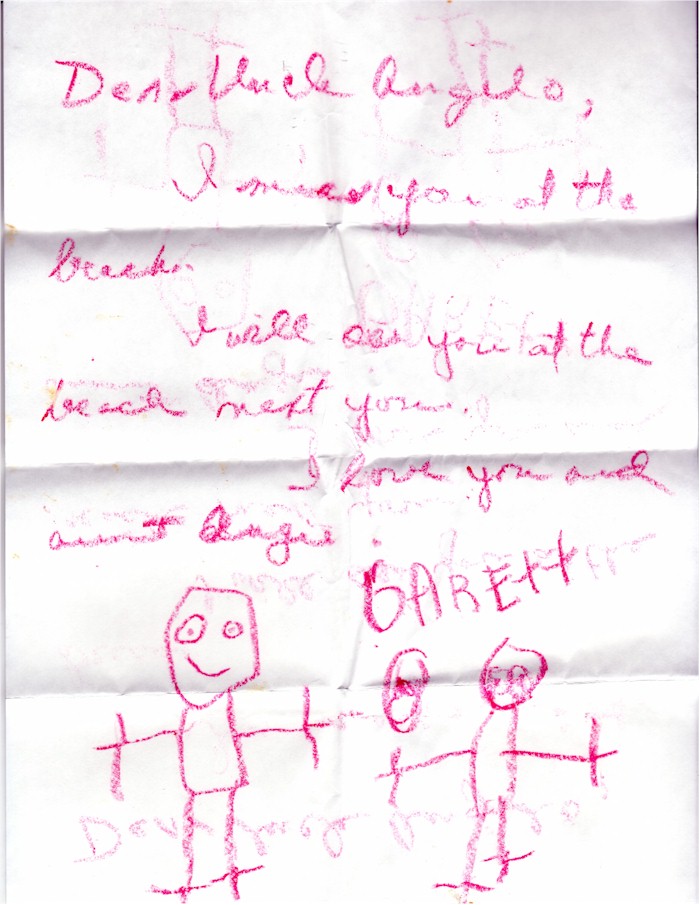 Dear Uncle Angelo,
I miss you at the
beach.
I will see you at the
beach next year.
I love you and
aunt Angie.
GARETT